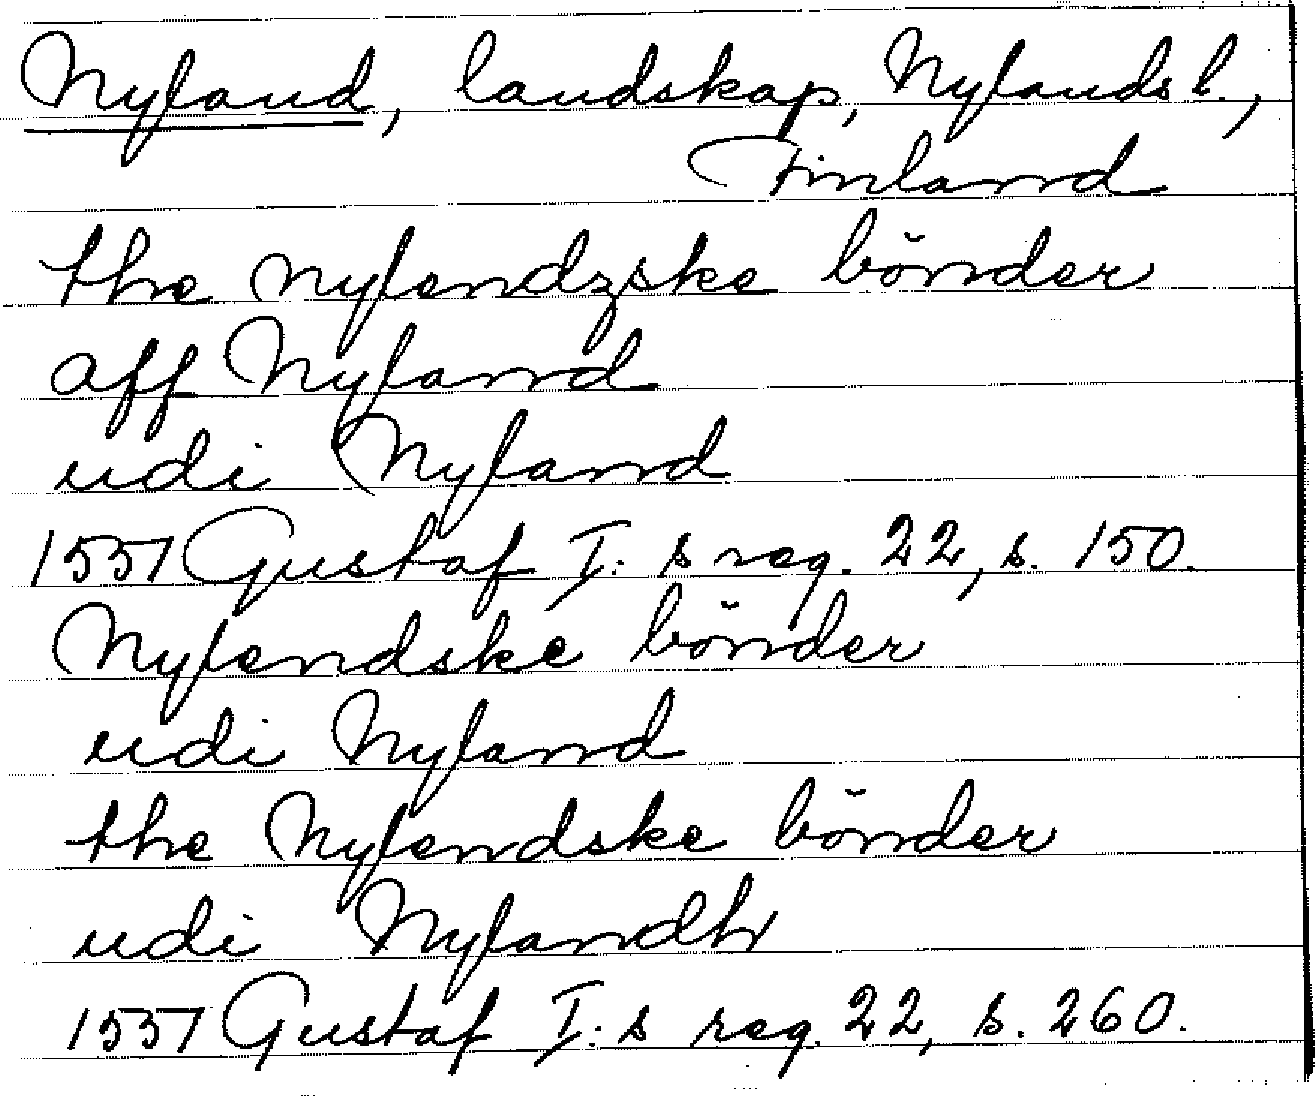 Nyland, landskap, Nylands l.,
Finland
the nylendzske bönder
aff Nyland
udi Nyland
1551 Gustaf I:s reg. 22, s. 150.
Nylendske bönder
udi Nyland
the Nylendske bönder
udi Nylandh
1551 Gustaf I:s reg. 22, s. 260.